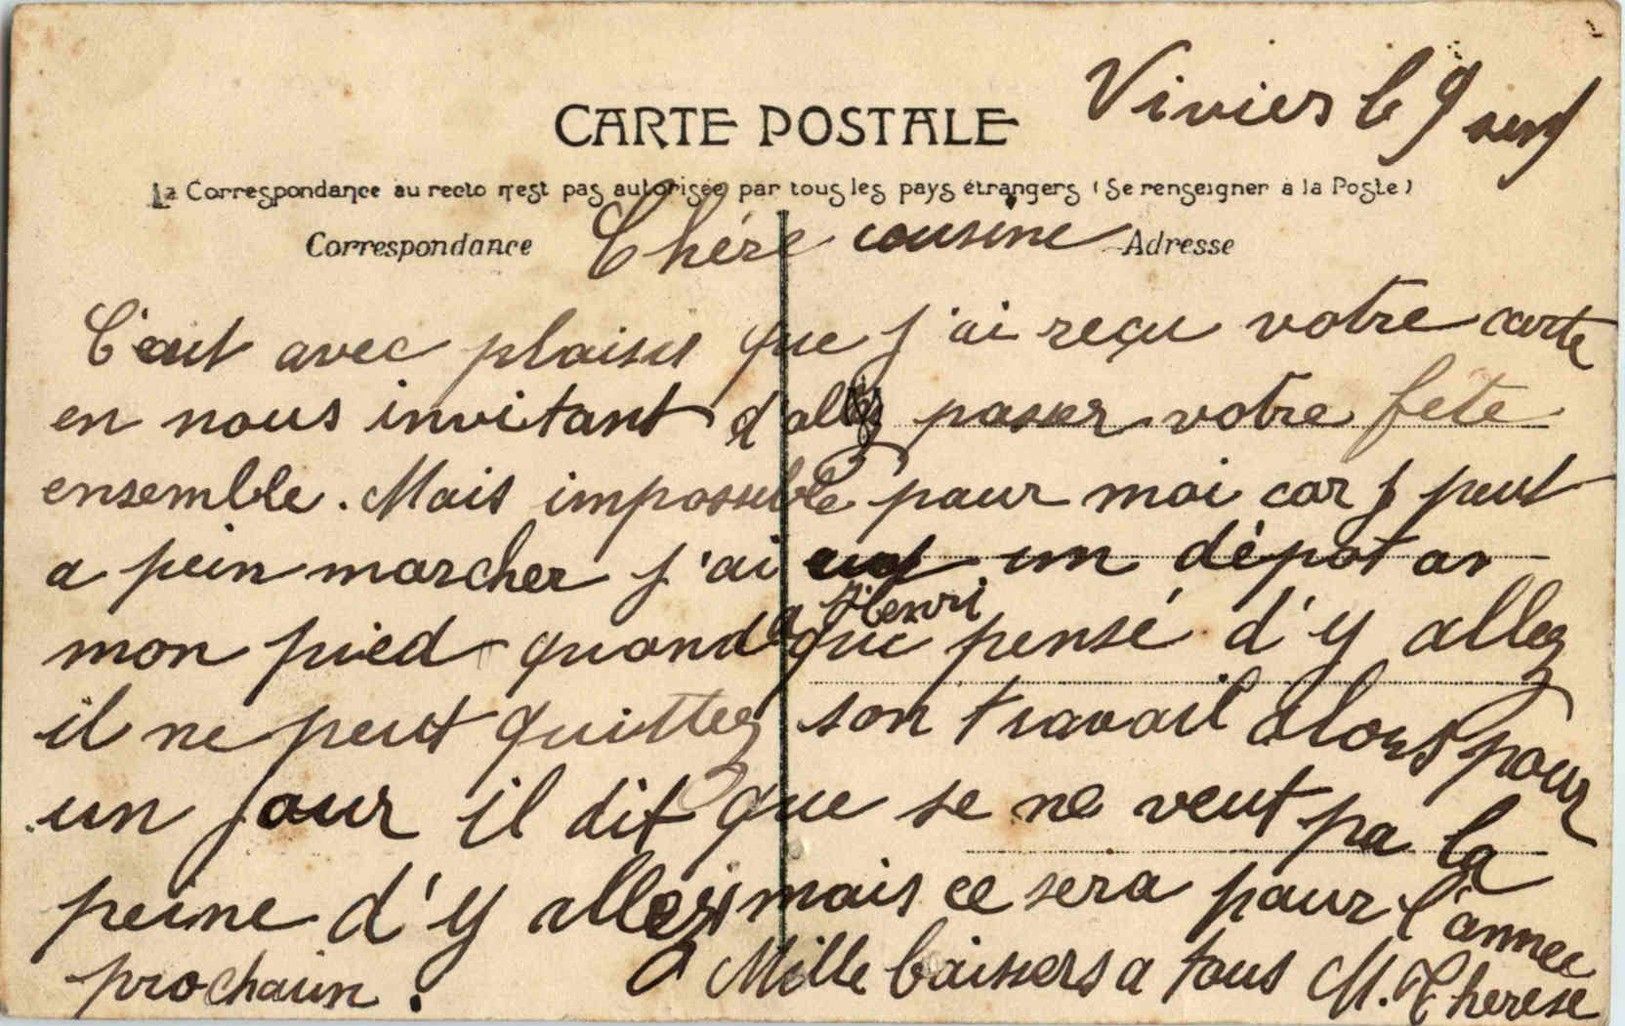 Viviers le 9
CARTE POSTALE
La Correspondance au recto n'est pas autorisée par tous les pays étrangers (Se renseigner à la Poste)
Correspondance
Adresse
Chére cousine
C'eut avec plaisir que j'ai reçu votre carte
en nous invitant d'allez passer votre fete
ensemble. Mais impossible pour moi car j peut
a pein marcher j'ai eut un dépot ar
mon pied quand a Henri que pensé d'y allez
il ne peut quittez son travail alors pour
un jour il dit que se ne veut pa la
peine d'y allez mais ce sera pour l'annee
prochain. Mille baissers a tous M. Therese